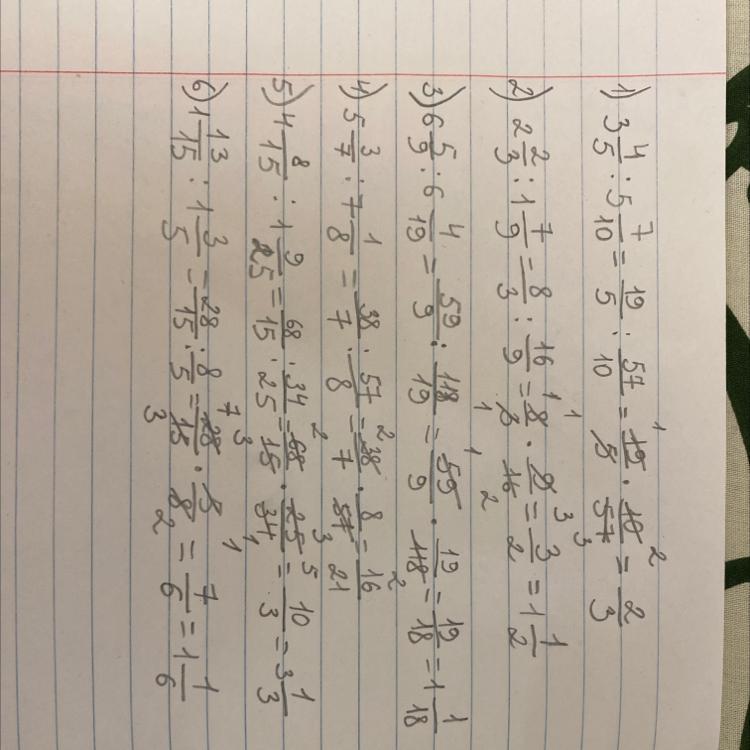 1) 3 4/5 : 5 7/10 = 19/5 : 57/10 = 19/5 · 10/57 = 2/3
2) 2 2/3 : 1 7/9 = 8/3 : 16/9 = 8/3 · 9/16 = 3/2 = 1 1/2
3) 6 5/9 : 6 4/19 = 59/9 : 118/19 = 59/9 · 19/118 = 19/18 = 1 1/18
4) 5 3/7 : 7 1/8 = 38/7 : 57/8 = 38/7 · 8/57 = 16/21
5) 4 8/15 : 1 9/25 = 68/15 : 34/25 = 68/15 · 25/34 = 10/3 = 3 1/3
6) 1 13/15 : 1 3/5 = 28/15 : 8/5 = 28/15 · 5/8 = 7/6 = 1 1/6